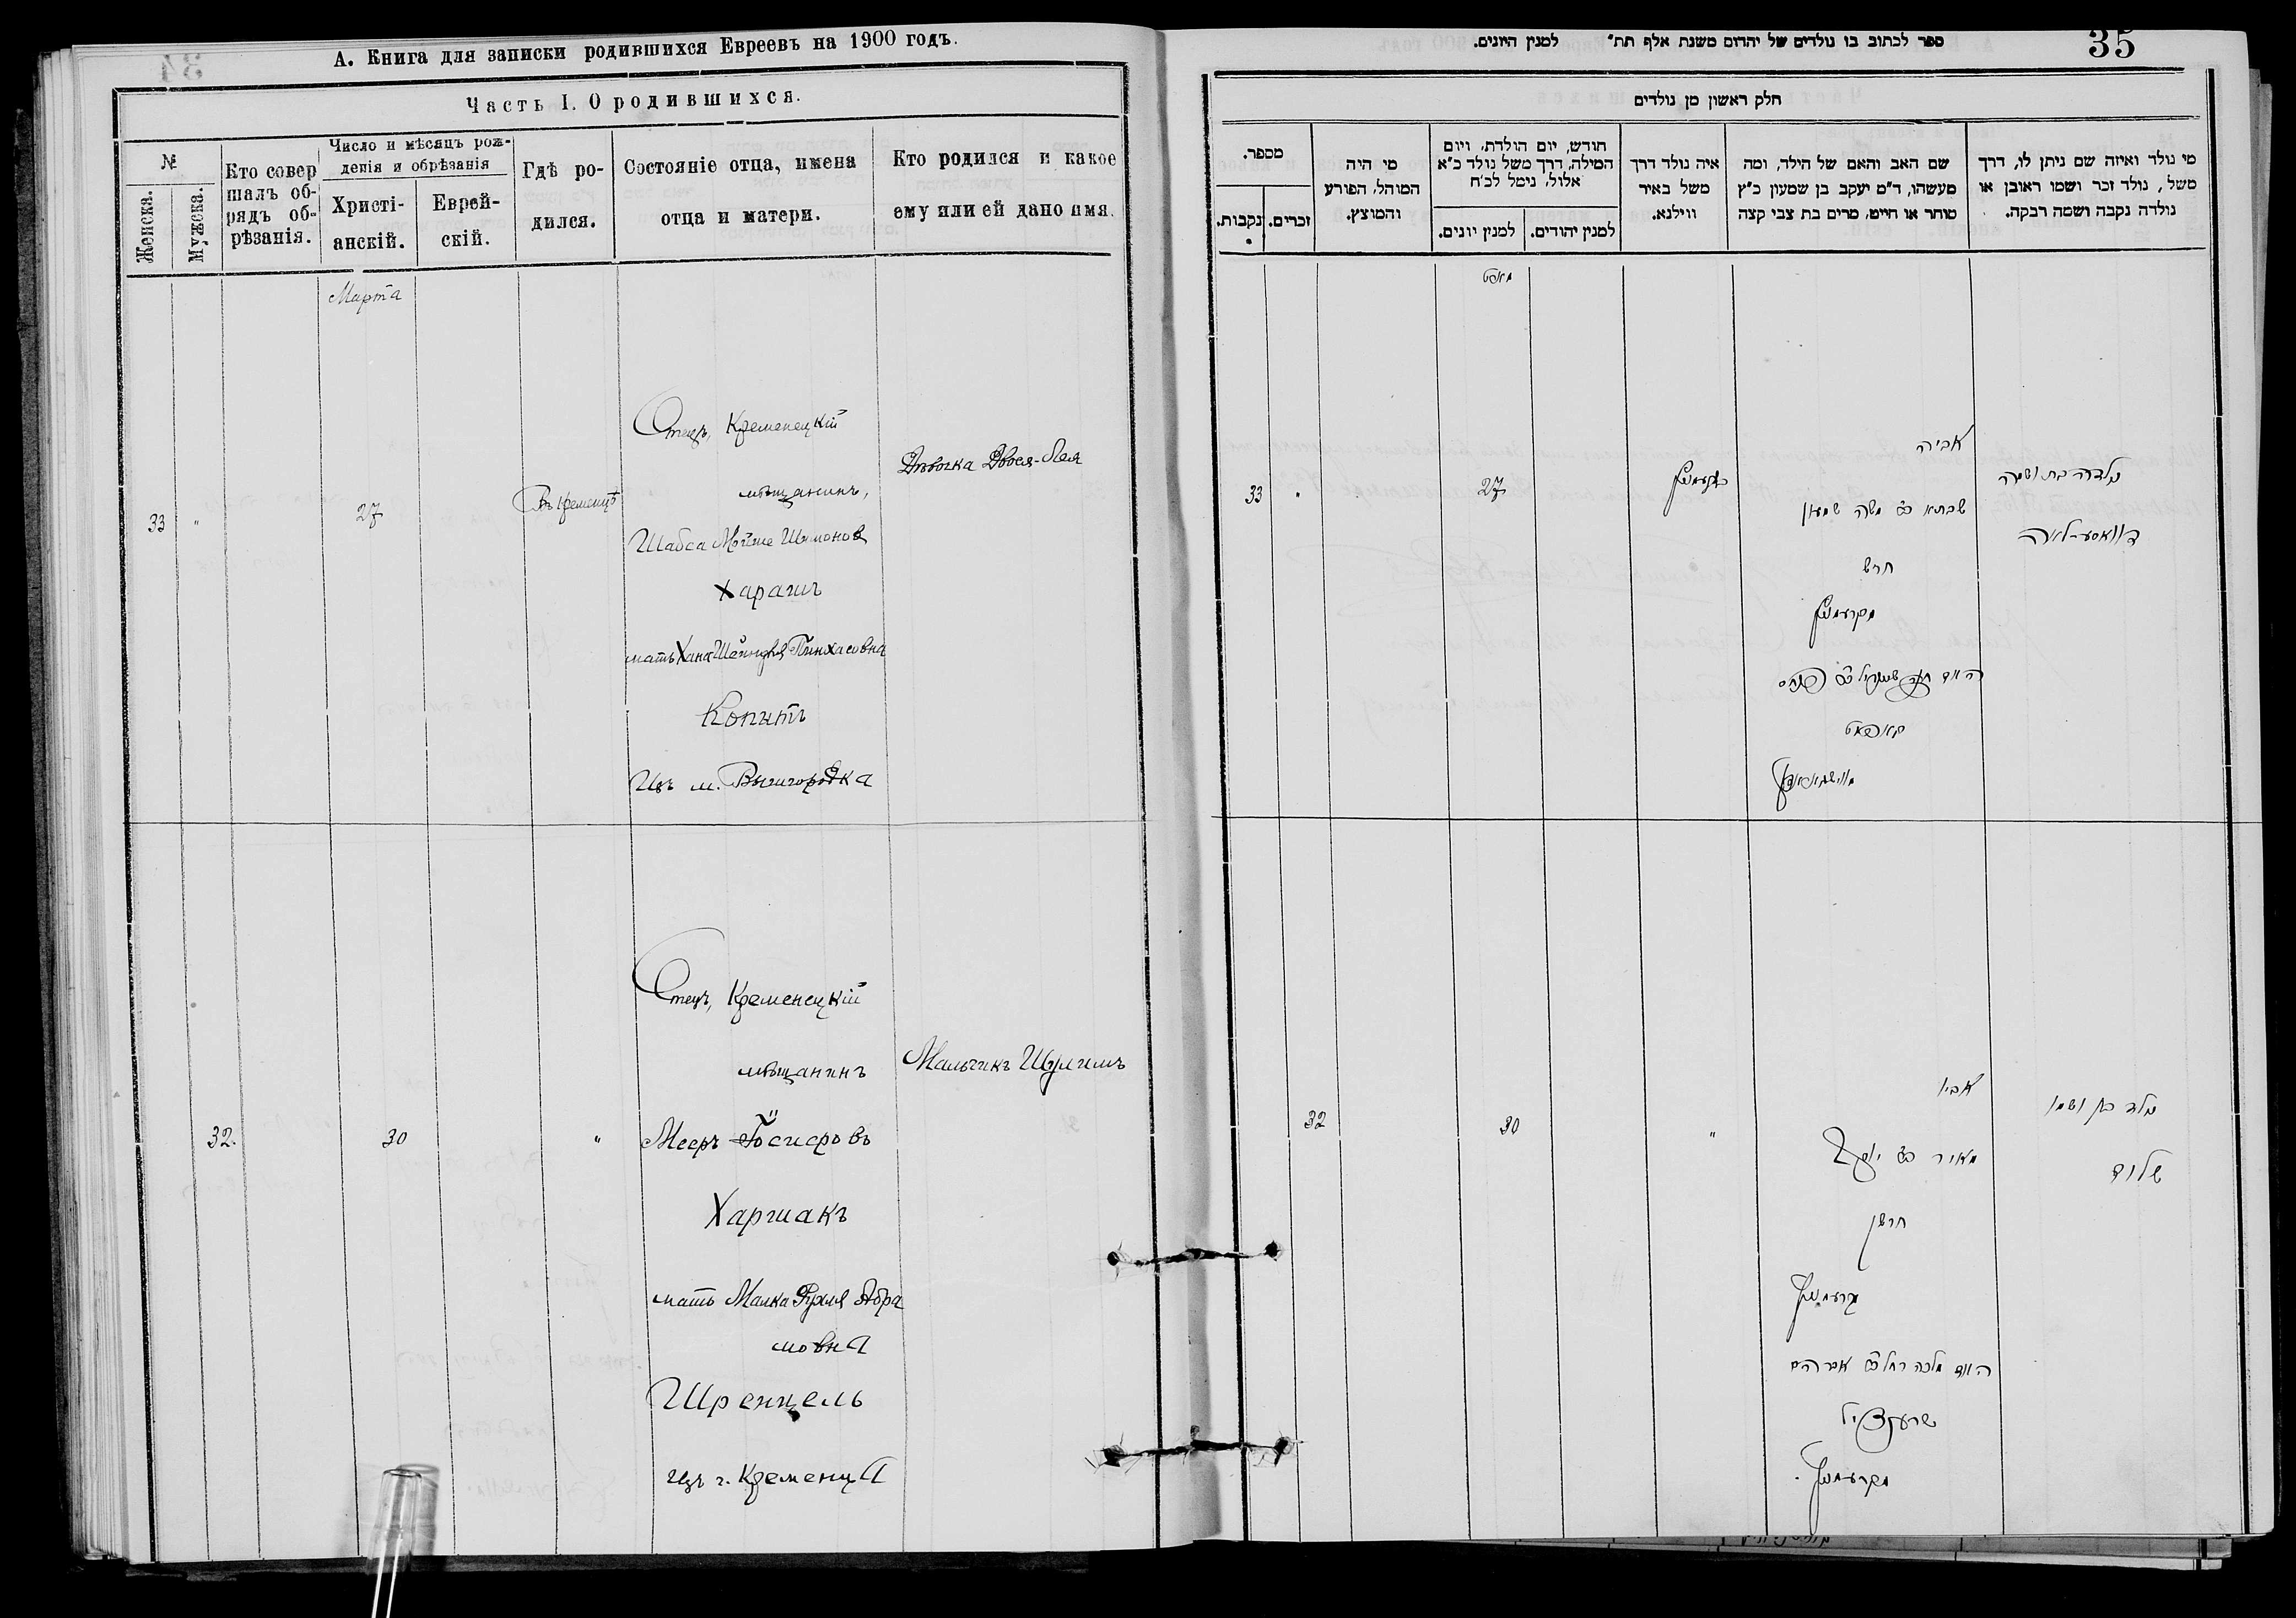 А. Книга для записки родившихся Евреевъ на 1900 годъ.
Часть I. О родившихся.
№
Женска.
Мужска.
Кто совер
шалъ об-
рядъ об-
рѣзанія.
Число и мѣсяцъ рож-
денія и обрѣзанія
Христі-
анскій.
Еврей-
скій.
Гдѣ ро-
дился.
Состояніе отца, имена
отца и матери.
Кто родился и какое
ему или ей дано имя.
Марта
33
"
27
Въ Кременцѣ
Отецъ, Кременецкій
мѣщанинъ,
Шабса Мойше Шимонов
Харашъ
мать Хана Пинхасовна
Копитъ
Изъ м. Вышгородка
Дѣвочка Двося-Лея
32.
30
"
Отецъ, Кременецкій
мѣщанинъ
Мееръ Іосифовъ
Харшакъ
мать Малка Рухля Абра
мовна
Шренцель
изъ г. Кременца
Мальчикъ Шулимъ
ספר לכתוב בו נולדים של יהדום משנת אלף תת" למנין היונים.
35
חלק ראשון מן נולדים
מספר.
נקבות.
זכרים.
מי היה
המוהל, הפורע
והמוצץ.
חודש, יום הולדת, ויום
המילה, דרך משל נולד כ"א
אלול, נימל לכ"ח
למנין יונים.
למנין יהודים.
איה נולד דרך
משל באיר
ווילנא.
שם האב והאם של הילד, ומה
מעשהו, ד"מ יעקב בן שמעון כ"ץ
סוחר או חייט, מרים בת צבי קצה
מי נולד ואיזה שם ניתן לו, דרך
משל, נולד זכר ושמו ראובן או
נולדה נקבה ושמה רבקה.
מארט
33
"
27
קרעמניץ
אביה
שבתא ב"ר משה שמעון
חרש
מקרעמניץ
האם חנה ב"ר פנחס
קאפיט
נולדה בת ושמה
דוואסע-לאה
32
30
"
אביו
מאיר ב"ר יוסף
קרעמניץ
האם מלכה רחל ב"ר אברהם
שרענציל
מקרעמניץ.
נולד בן ושמו
שלום